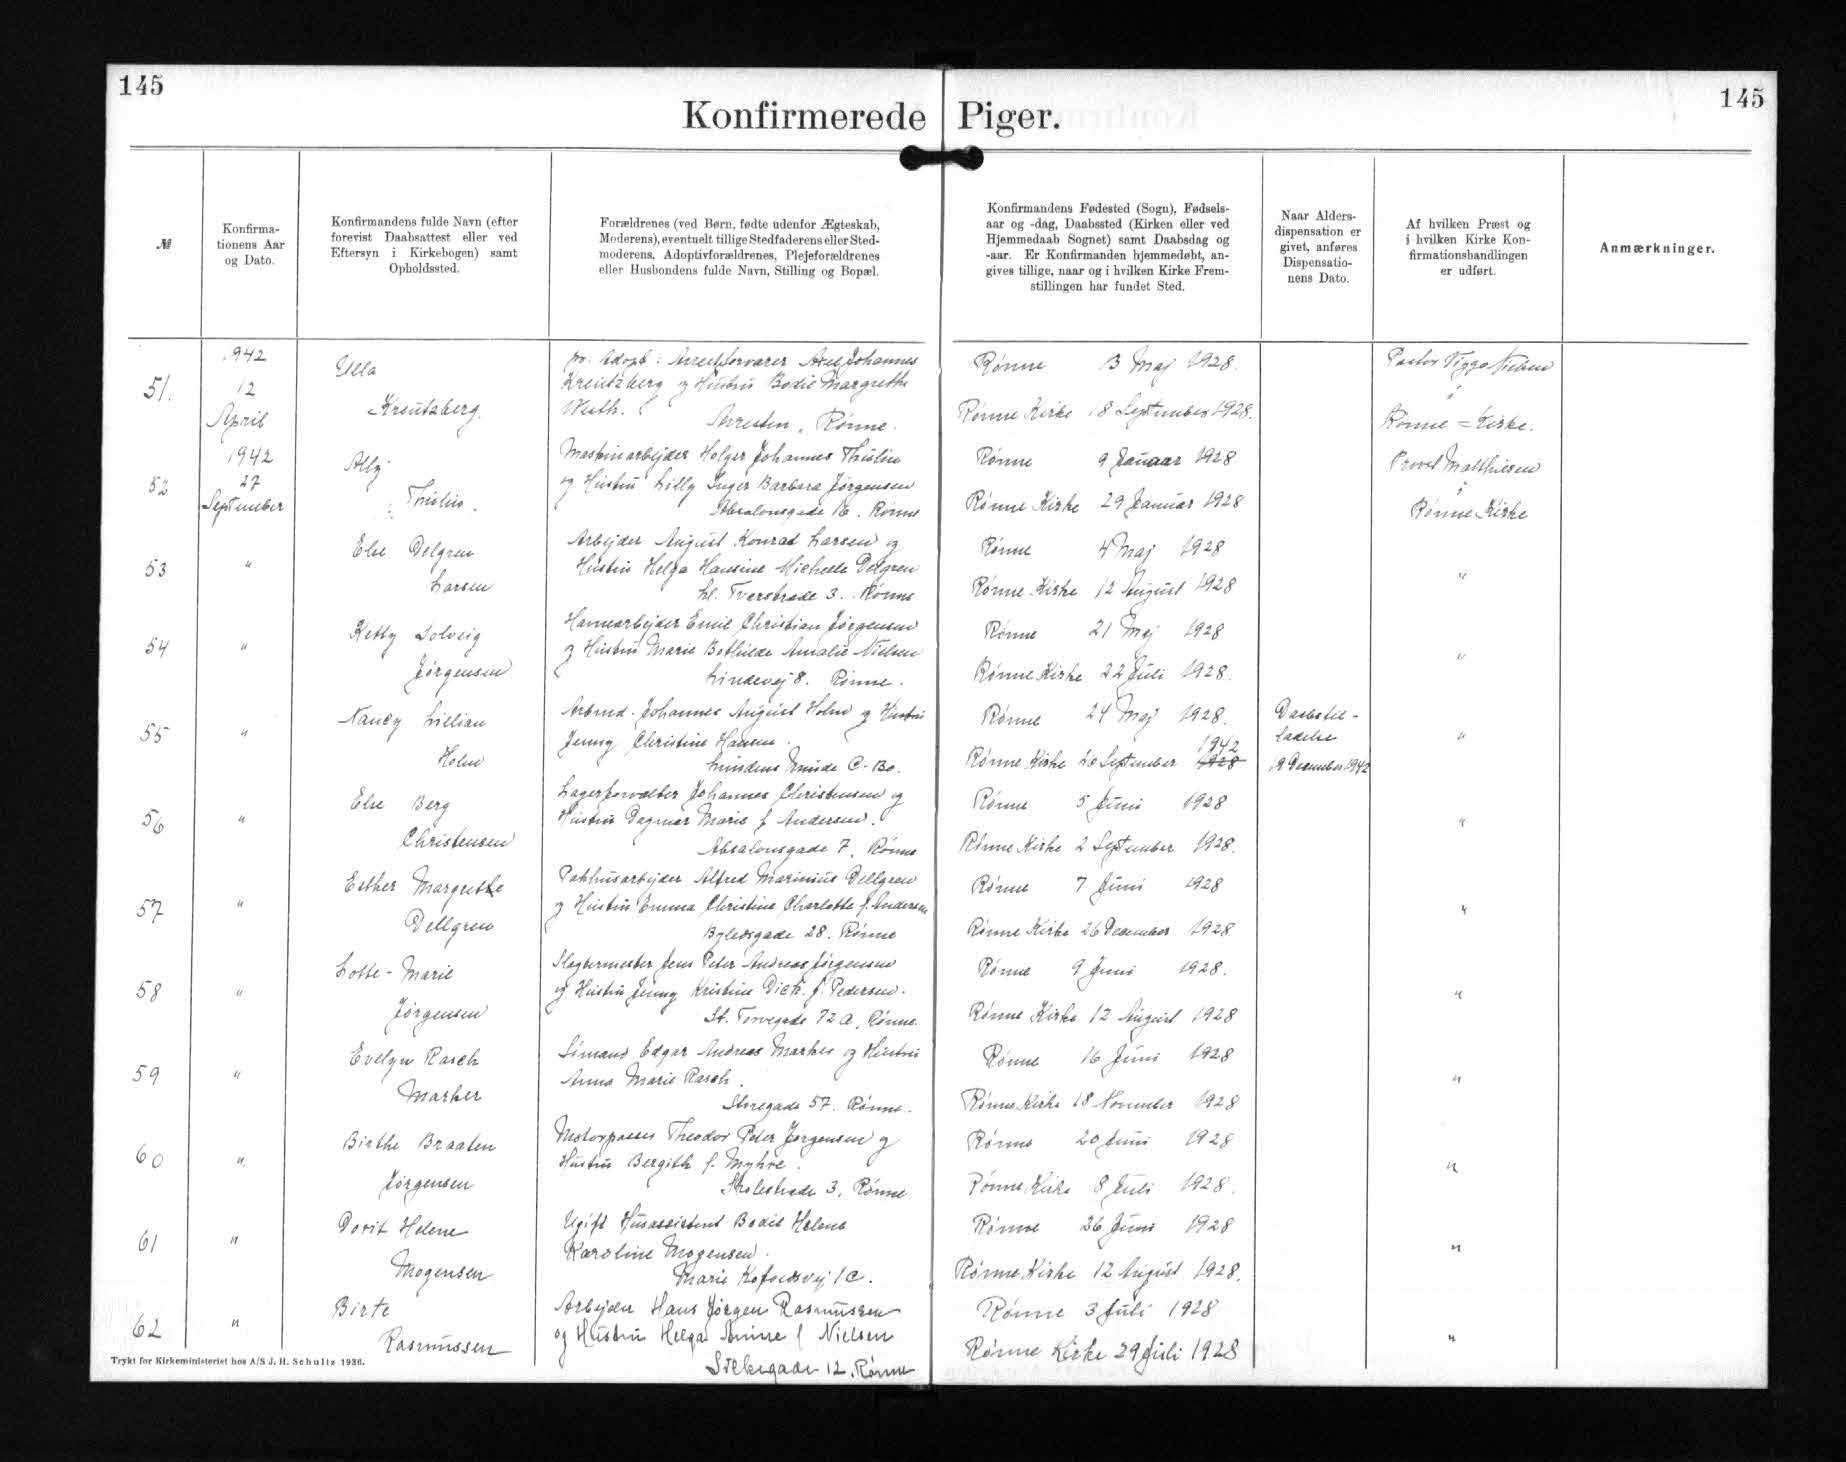 145
145
Konfirmerede Piger.
№
Konfirma-
tionens Aar
og Dato.
Konfirmandens fulde Navn (efter
forevist Daabsattest eller ved
Eftersyn i Kirkebogen) samt
Opholdssted.
Forældrenes (ved Børn, fødte udenfor Ægteskab,
Moderens), eventuelt tillige Stedfaderens eller Sted-
moderens, Adoptivforældrenes, Plejeforældrenes
eller Husbondens fulde Navn, Stilling og Bopæl.
Konfirmandens Fødested (Sogn), Fødsels-
aar og -dag, Daabssted (Kirken eller ved
Hjemmedaab Sognet) samt Daabsdag og
-aar. Er Konfirmanden hjemmedøbt, an-
gives tillige, naar og i hvilken Kirke Frem-
stillingen har fundet Sted.
Naar Alders-
dispensation er
givet, anføres
Dispensatio-
nens Dato.
Af hvilken Præst og
i hvilken Kirke Kon-
firmationshandlingen
er udført.
Anmærkninger.
51.
1942
12
April
Ulla
Kreutzberg.
Adopt: Arrestforvarer Axel Johannes
Kreutzberg og Hustru Bodil Margrethe
Westh.
Arresten, Rønne.
Rønne 13 Maj 1928.
Rønne Kirke 18 September 1928.
Pastor Viggo Nielsen
i
Rønne = Kirke.
52
1942
27
September
Ally
Thulin.
Maskinarbejder Holger Johannes Thulin
og Hustru Lilly Inger Barbara Jørgensen
Absalonsgade 16. Rønne
Rønne 9 Januar 1928
Rønne Kirke 29 Januar 1928
Provst Matthiesen
i
Rønne Kirke
53
"
Else Delgren
Larsen
Arbejder August Konrad Larsen og
Hustru Helga Hansine Michelle Delgren
Ll. Tværstræde 3. Rønne
Rønne 4 Maj 1928
Rønne Kirke 12 August 1928
"
54
"
Ketty Solveig
Jørgensen
Havnearbejder Emil Christian Jørgensen
og Hustru Marie Bothilde Amalie Nielsen
Lindevej 8. Rønne.
Rønne 21 Maj 1928
Rønne Kirke 22 Juli 1928.
"
55
"
Nancy Lillian
Holm
Arbmd. Johannes August Holm og Hustru
Jenny Christine Hansen.
Lundens Minde C-Bo.
Rønne 24 Maj 1928.
1942
Rønne Kirke 26 September 1928
Daabstil-
ladelse
19 December 1942
"
56
"
Else Berg
Christensen
Lagerforvalter Johannes Christensen og
Hustru Dagmar Marie f. Andersen.
Absalonsgade 7, Rønne
Rønne 5 Juni 1928
Rønne Kirke 2 September 1928.
"
57
"
Esther Margrethe
Dellgren
Pakhusarbejder Alfred Marinius Dellgren
og Hustru Emma Christine Charlotte f. Andersen
Byledsgade 28. Rønne
Rønne 7 Juni 1928
Rønne Kirke 26 December 1928
"
58
"
Lotte-Marie
Jørgensen
Slagtermester Jens Peter Andreas Jørgensen
og Hustru Jenny Kristine f. Pedersen.
St. Torvegade 72 A, Rønne.
Rønne 9 Juni 1928.
Rønne Kirke 12 August 1928
"
59
"
Evelyn Rasch
Marker
Sømand Edgar Andreas Marker og Hustru
Anna Marie Rasch.
Storegade 57. Rønne.
Rønne 16 Juni 1928
Rønne Kirke 18 November 1928
"
60
"
Birthe Braaten
Jørgensen
Motorpasser Theodor Peter Jørgensen og
Hustru Bergith f. Myhre.
Skolestræde 3, Rønne
Rønne 20 Juni 1928
Rønne Kirke 8 Juli 1928.
"
61
"
Dorit Helene
Mogensen
Ugift Husassistent Bodil Helene
Karoline Mogensen.
Marie Kofoedsvej 1C.
Rønne 26 Juni 1928
Rønne Kirke 12 August 1928.
"
62
"
Birte
Rasmussen
Arbejder Hans Jørgen Rasmussen
og Hustru Helga Anine f Nielsen
12, Rønne
Rønne 3 Juli 1928
Rønne Kirke 29 Juli 1928
"
Trykt for Kirkeministeriet hos A/S J. H. Schultz 1936.